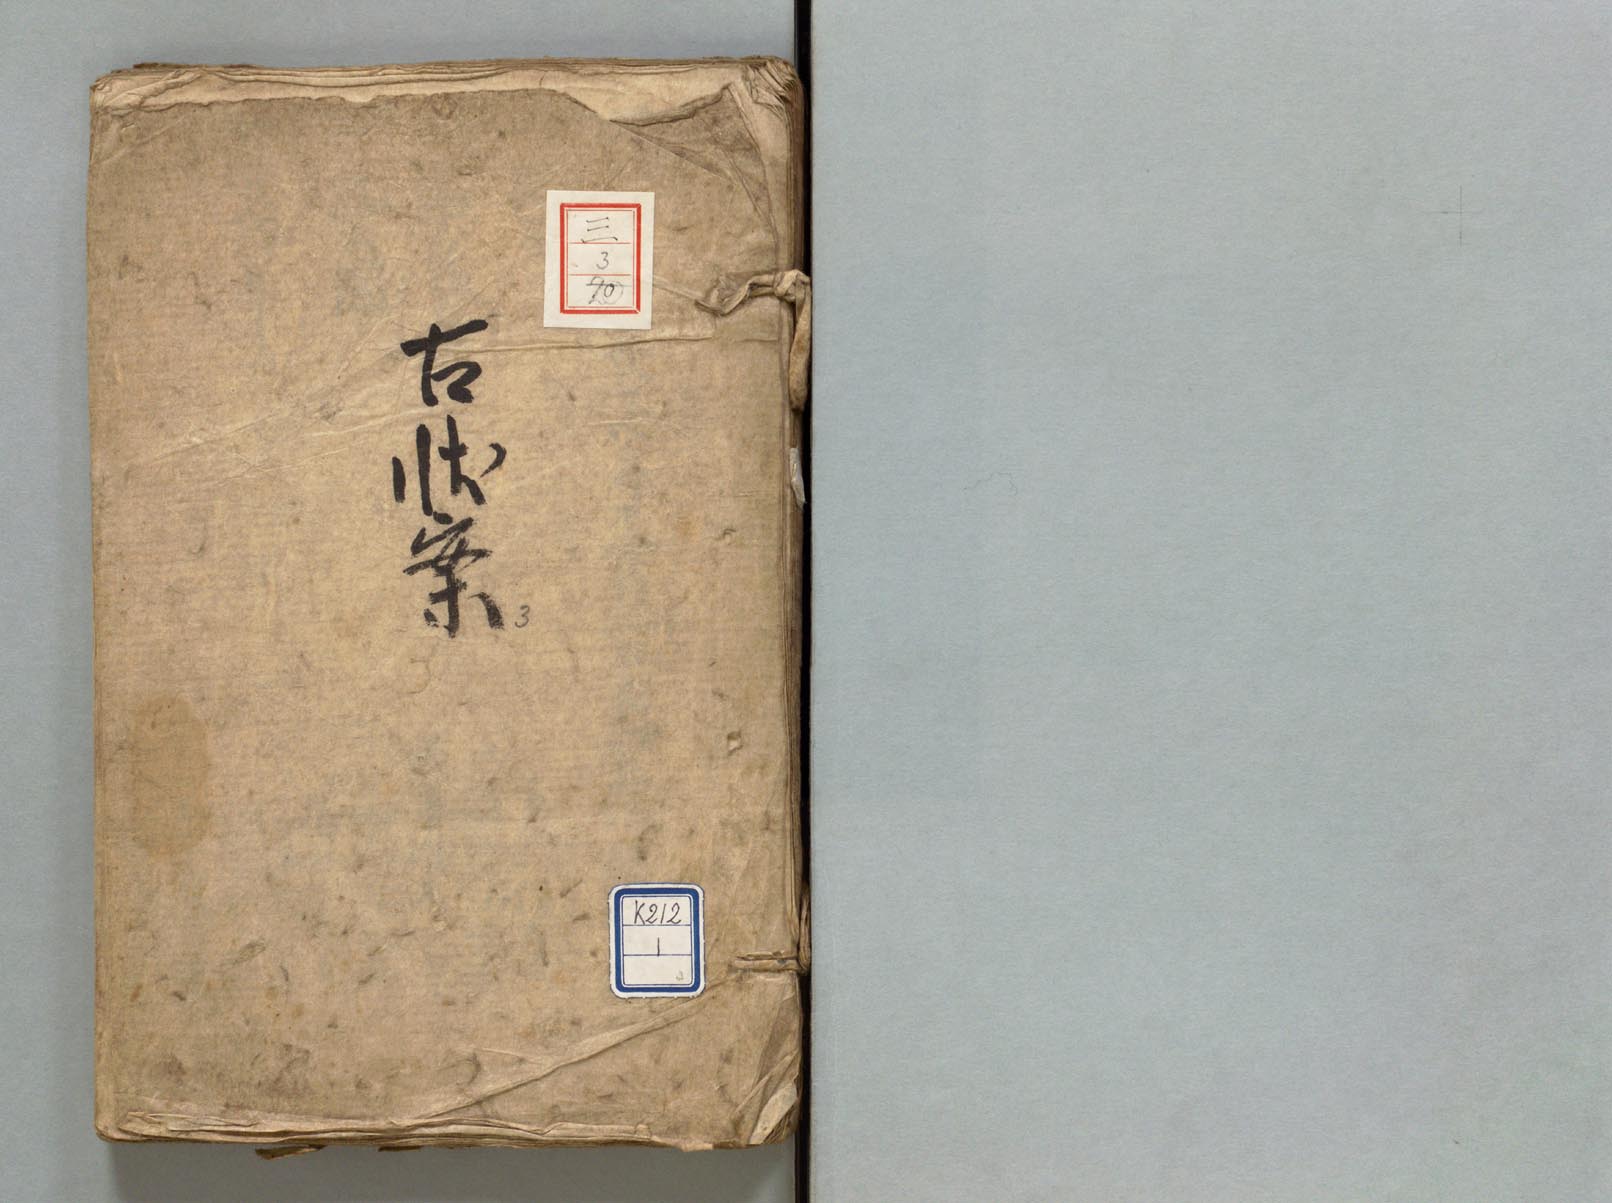 三
3
20
古状案
3
K212
1
3